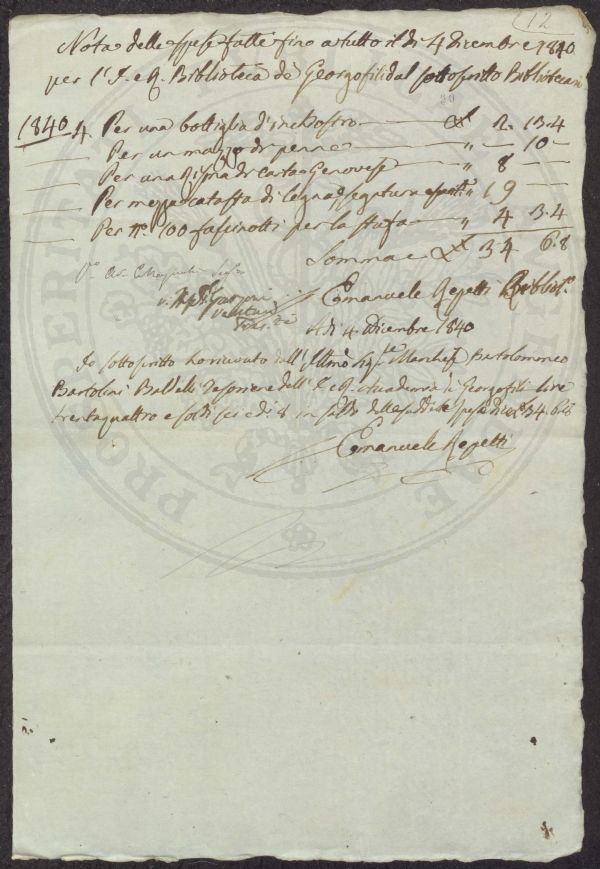 12
Nota delle spese fatte fino a tutto il dì 4 Dicembre 1840
per l'I. e R. Biblioteca de Georgofili dal sottoscritto Bibliotecario
1840 4 Per una bottiglia d'inchiostro — £ 2. 13. 4
Per un mazzo di penne " — 10 —
Per una risma di carta Genovese " 8 —
Per mezza catasta di legna e segatura " 19 —
Per n.° 100 fascinotti per la stufa " 4 3. 4
Somma £ 34 6. 8
Emanuele Repetti Bibliot.º
A dì 4 Dicembre 1840
Io sottoscritto ho ricevuto dall'Illmo Sig.re Marchese Bartolommeo
Bartolini Baldelli Tesoriere dell'I. e R. Accademia de Georgofili lire
trentaquattro e soldi sei e d. 8 in saldo delle suddette spese 34. 6. 8
Emanuele Repetti